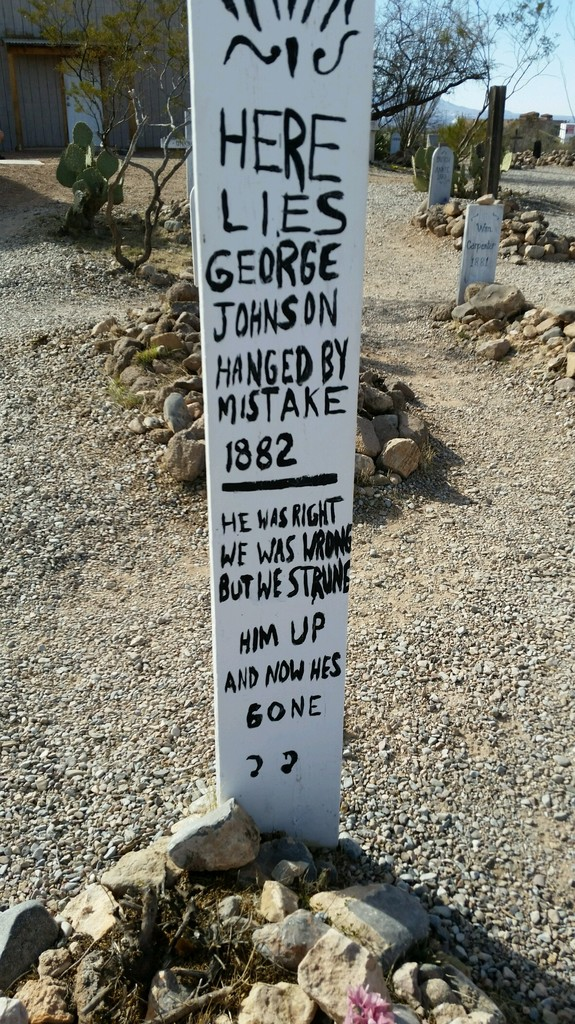 HERE
LIES
GEORGE
JOHNSON
HANGED BY
MISTAKE
1882
HE WAS RIGHT
WE WAS WRONG
BUT WE STRUNG
HIM UP
AND NOW HES
GONE
Wm
Carpenter
1881